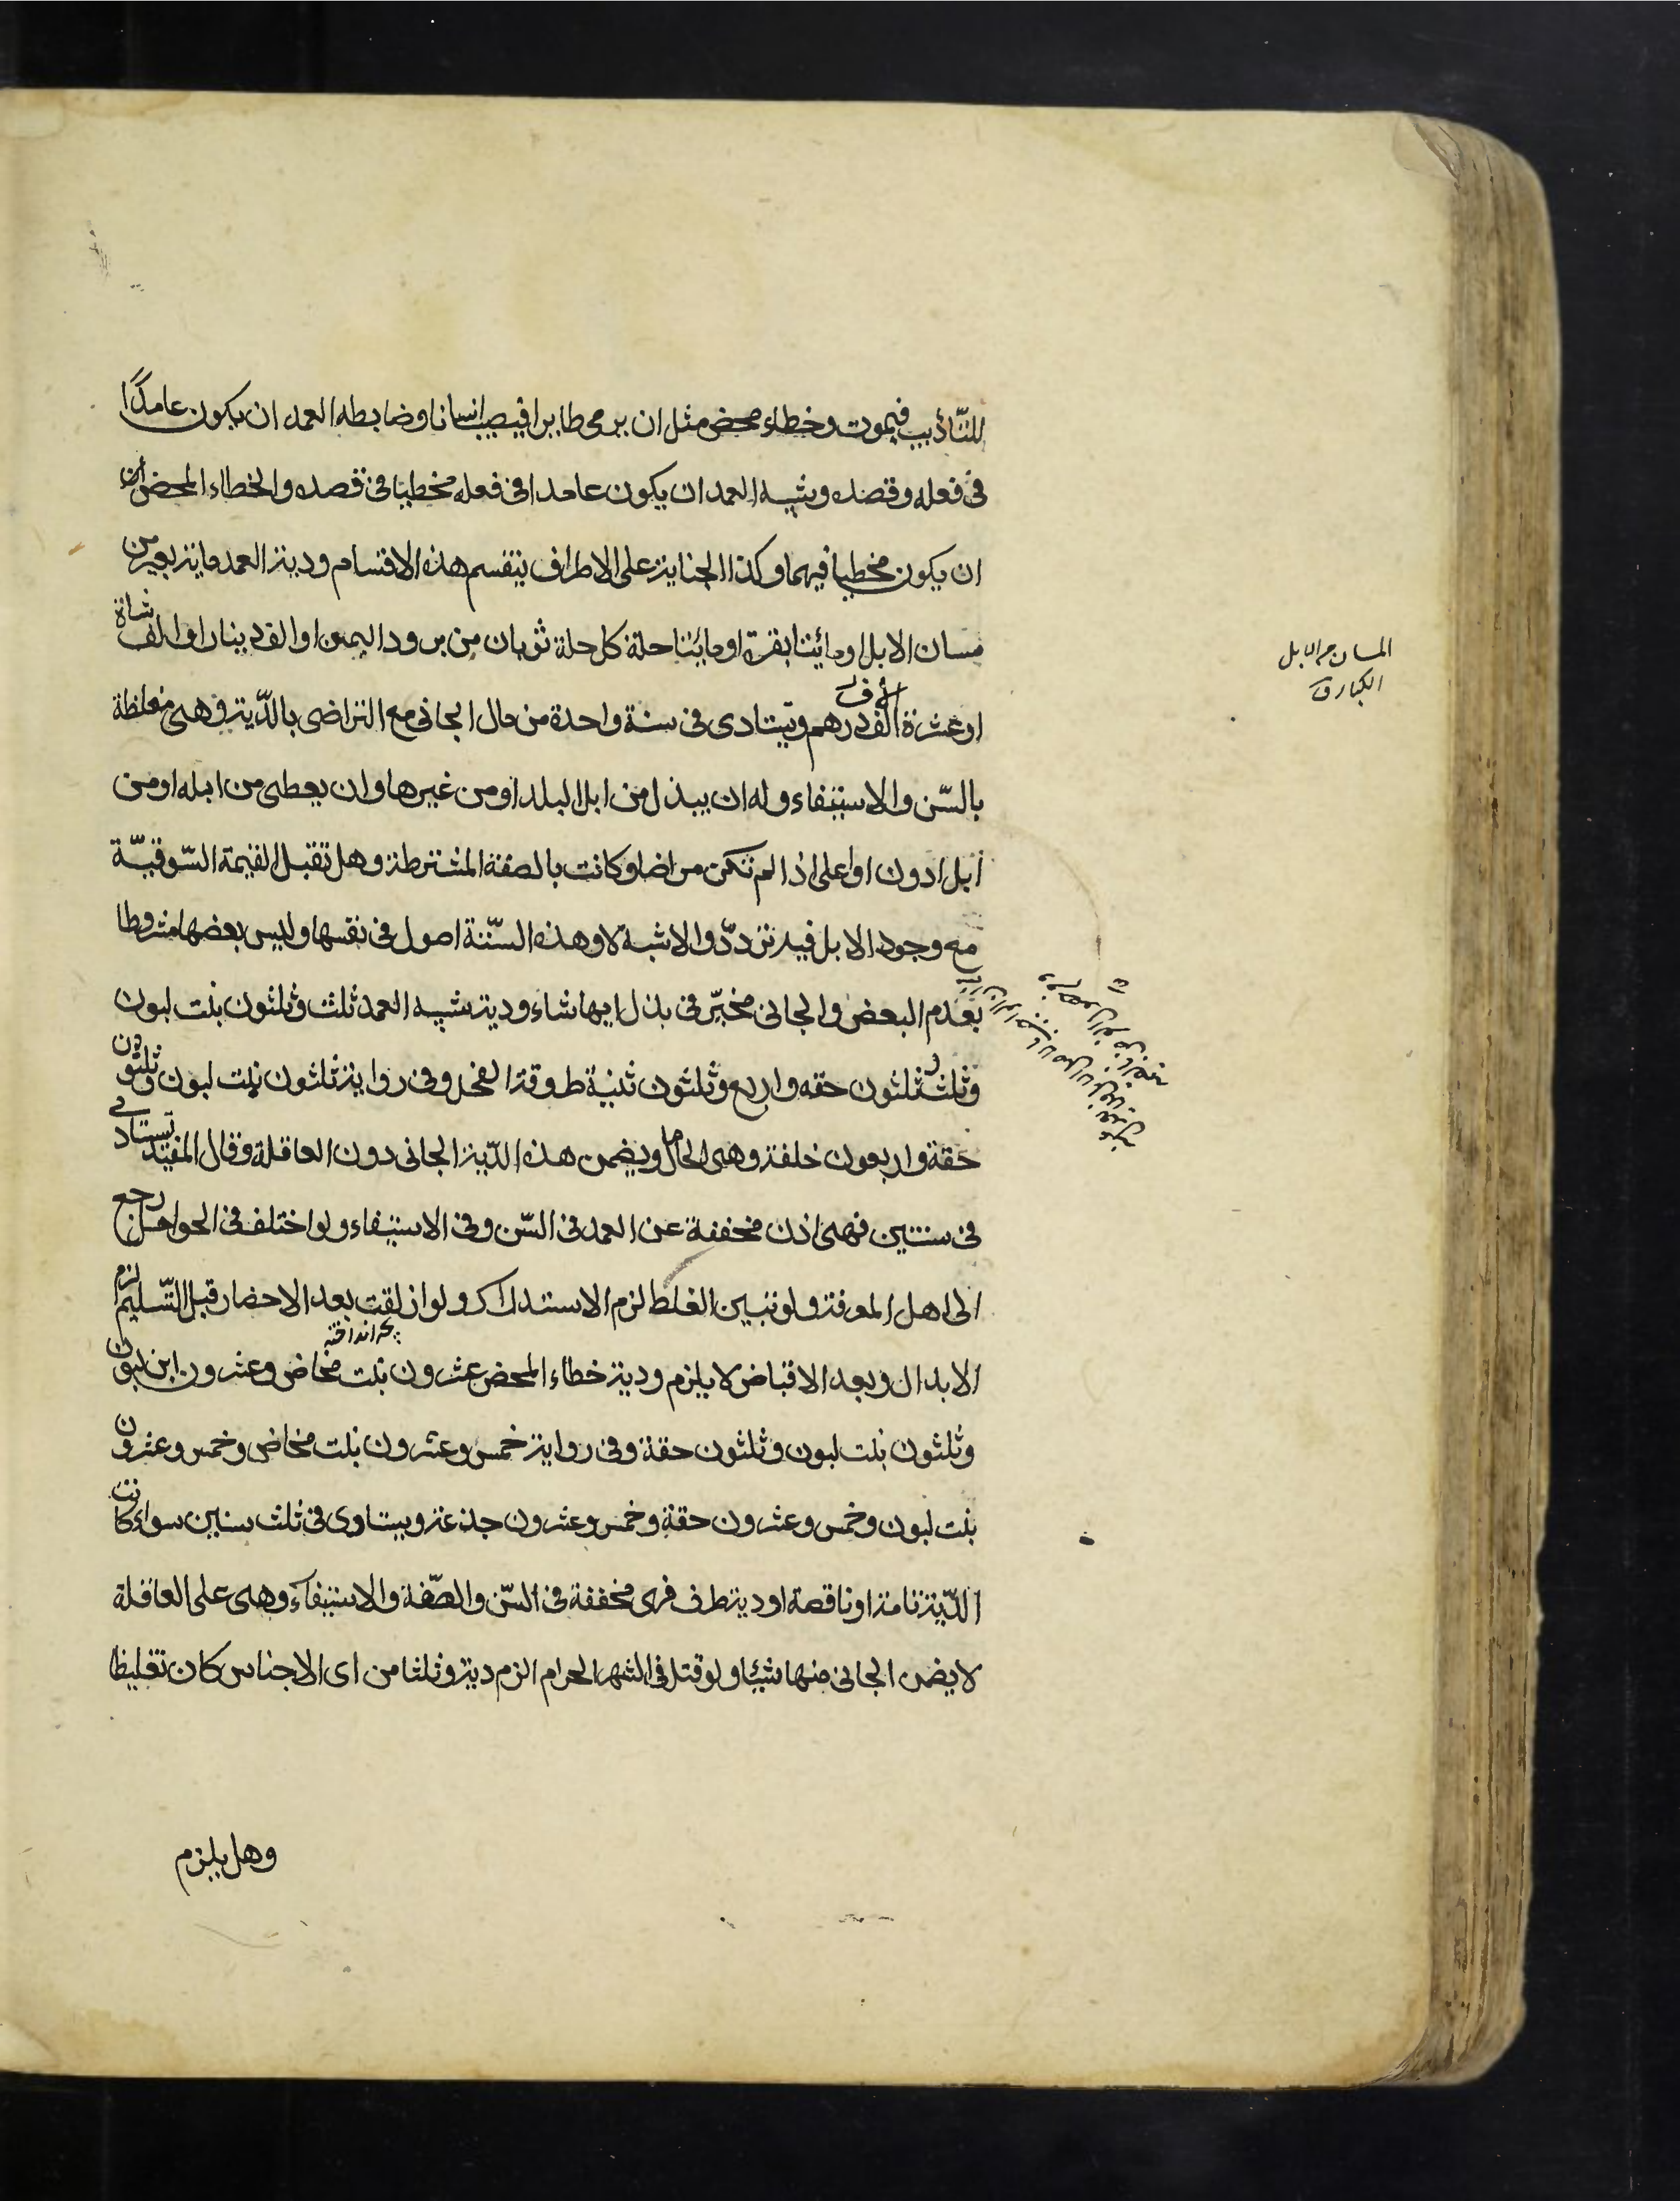 للتّأديب فيموت وخطاء محض مثل ان يرمى طايرا فيصيب انسانا وضابطه العمد ان يكون عامدًا
فى فعله وقصده وشبيه العمد ان يكون عامدا فى فعله مخطيا فى قصده والخطاء المحض ان
ان يكون مخطيا فيهما وكذا الجناية على الاطراف ينقسم هذه الاقسام ودية العمد ماية بعير من
مسان الابل او مائتا بقرة او مائتا حلة كل حلة ثوبان من برود اليمن او الف دينار او الف شاة
او عشرة آلاف درهم ويتادى فى سنة واحدة من مال الجانى مع التراضى بالدّية فهى مغلظة
بالسّن والاستيفاء وله ان يبذل من ابل البلد او من غيرها وان يعطى من ابله او من
ابل ادون او اعلى اذا لم تكن مراضا وكانت بالصفة المشترطة وهل تقبل القيمة السّوقيّة
مع وجود الابل فيه تردّد والاشبه لا وهذه السّتة اصول فى نفسها وليس بعضها مشروطا
بعدم البعض والجانى مخيّر فى بذل ايها شاء ودية شبيه العمد ثلث وثلثون بنت لبون
وثلث وثلثون حقه واربع وثلثون ثنية طروقة الفحل وفى رواية ثلثون بنت لبون وثلثون
حقة واربعون خلفة وهى الحامل ويضمن هذه الدّية الجانى دون العاقلة وقال المفيد تستادى
فى سنتين فهى اذن مخففة عن العمد فى السّن وفى الاستيفاء ولو اختلف فى الحوامل رجع
الى اهل المعرفة ولو تبين الغلط لزم الاستدراك ولو ازلقت بعد الاحضار قبل التّسليم لزم
بچه انداخته
الابدال وبعد الاقباض لا يلزم ودية خطاء المحض عشرون بنت مخاض وعشرون ابن لبون
وثلثون بنت لبون وثلثون حقة وفى رواية خمس وعشرون بنت مخاض وخمس وعشرون
بنت لبون وخمس وعشرون حقة وخمس وعشرون جذعة ويستادى فى ثلث سنين سواء كانت
الدّية تامة او ناقصة او دية طرف فهى مخففة فى السّن والصّفة والاستيفاء وهى على العاقلة
لا يضمن الجانى منها شيئا ولو قتل فى الشهر الحرام الزم دية وثلثا من اى الاجناس كان تغليظا
وهل يلزم
المسان من الابل
الكبار ق